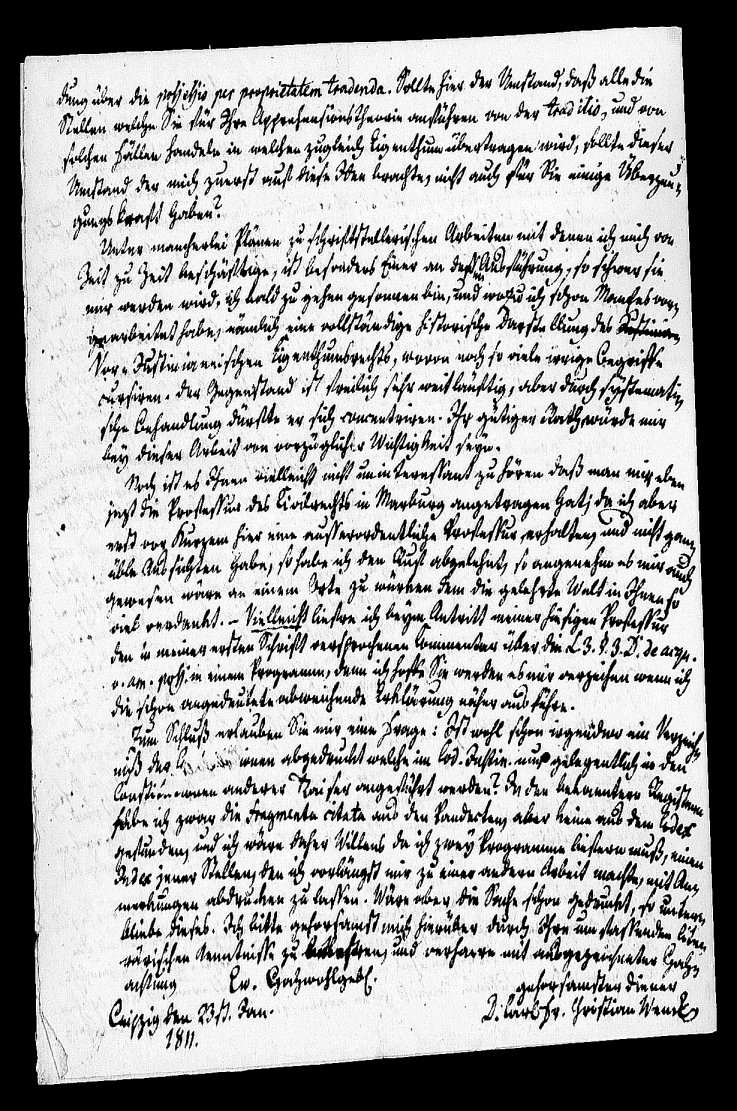 dung über die possessio per proprietatem tradenda. Sollte hier der Umstand, daß alle die
Stellen welche Sie für Ihre Apprehensionstheorie anführen von der traditio, und von
solchen Fällen handeln in welchen zugleich Eigenthum übertragen wird, sollte dieser
Umstand der mich zuerst auf diese Idee brachte, nicht auch für Sie einige Überzeu-
gungskraft haben?
Unter mancherlei Plänen zu schriftstellerischen Arbeiten mit denen ich mich von
Zeit zu Zeit beschäftige, ist besonders Einer an deß Ausführung, so schwer sie
mir werden wird, ich bald zu gehen gesonnen bin, und wozu ich schon Manches vor-
gearbeitet habe, nämlich eine vollständige historische Darstellung des
Vor-Justinianeischen Eigenthumsrechts, wovon noch so viele irrige Begriffe
cursiren. Der Gegenstand ist freilich sehr weitläuftig, aber durch systemati-
sche Behandlung dürfte er sich concentriren. Ihr gütiger Rath würde mir
bey dieser Arbeit von vorzüglicher Wichtigkeit seyn.
Noch ist es Ihnen vielleicht nicht uninteressant zu hören daß man mir eben
jezt die Professur des Civilrechts in Marburg angetragen hat; da ich aber
erst vor Kurzem hier eine ausserordentliche Professur erhalten, und nicht ganz
üble Aussichten habe, so habe ich den Ruf abgelehnt, so angenehm es mir auch
gewesen wäre an einem Orte zu würken dem die gelehrte Welt in Ihnen so
viel verdankt. – Vielleicht liefre ich beym Antritt meiner hiesigen Professur
den in meiner ersten Schrift versprochenen Commentar über den L 3. §. 3. D. de acqu.
v. am. poss. in einem Programm, denn ich hoffe Sie werden es mir verzeihen wenn ich
die schon angedeutete abweichende Erklärung näher ausführe.
Zum Schluß erlauben Sie mir eine Frage: Ist wohl schon irgendwo ein Verzeich-
niß der abgedruckt welche im Cod. Justin. nur gelegentlich in den
Constitutionen anderer Kaiser angeführt werden? In den bekanntern Registern
habe ich zwar die Fragmenta citata aus den Pandecten, aber keine aus dem Codex
gefunden, und ich wäre daher Willens da ich zwey Programme liefern muß, einen
Index jener Stellen, den ich vorlängst mir zu einer andern Arbeit machte, mit An-
merkungen abdrucken zu lassen. Wäre aber die Sache schon gedruckt, so unter-
bliebe dieses. Ich bitte gehorsamst mich hierüber durch Ihre umfassenden liter-
rärischen Kenntnisse zu belehren, und verharre mit ausgezeichneter Hoch-
achtung Ew. Hochwohlgeb.
gehorsamster Diener
Leipzig den 23st. Jan. D. Carl Fr. Christian Wenck
1811.